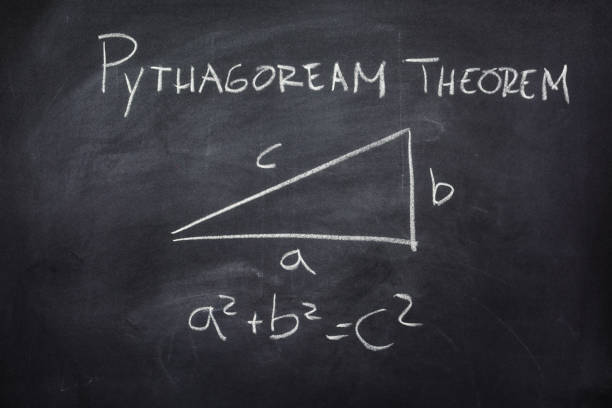 PYTHAGOREAM THEOREM
c
b
a
a²+b²=c²